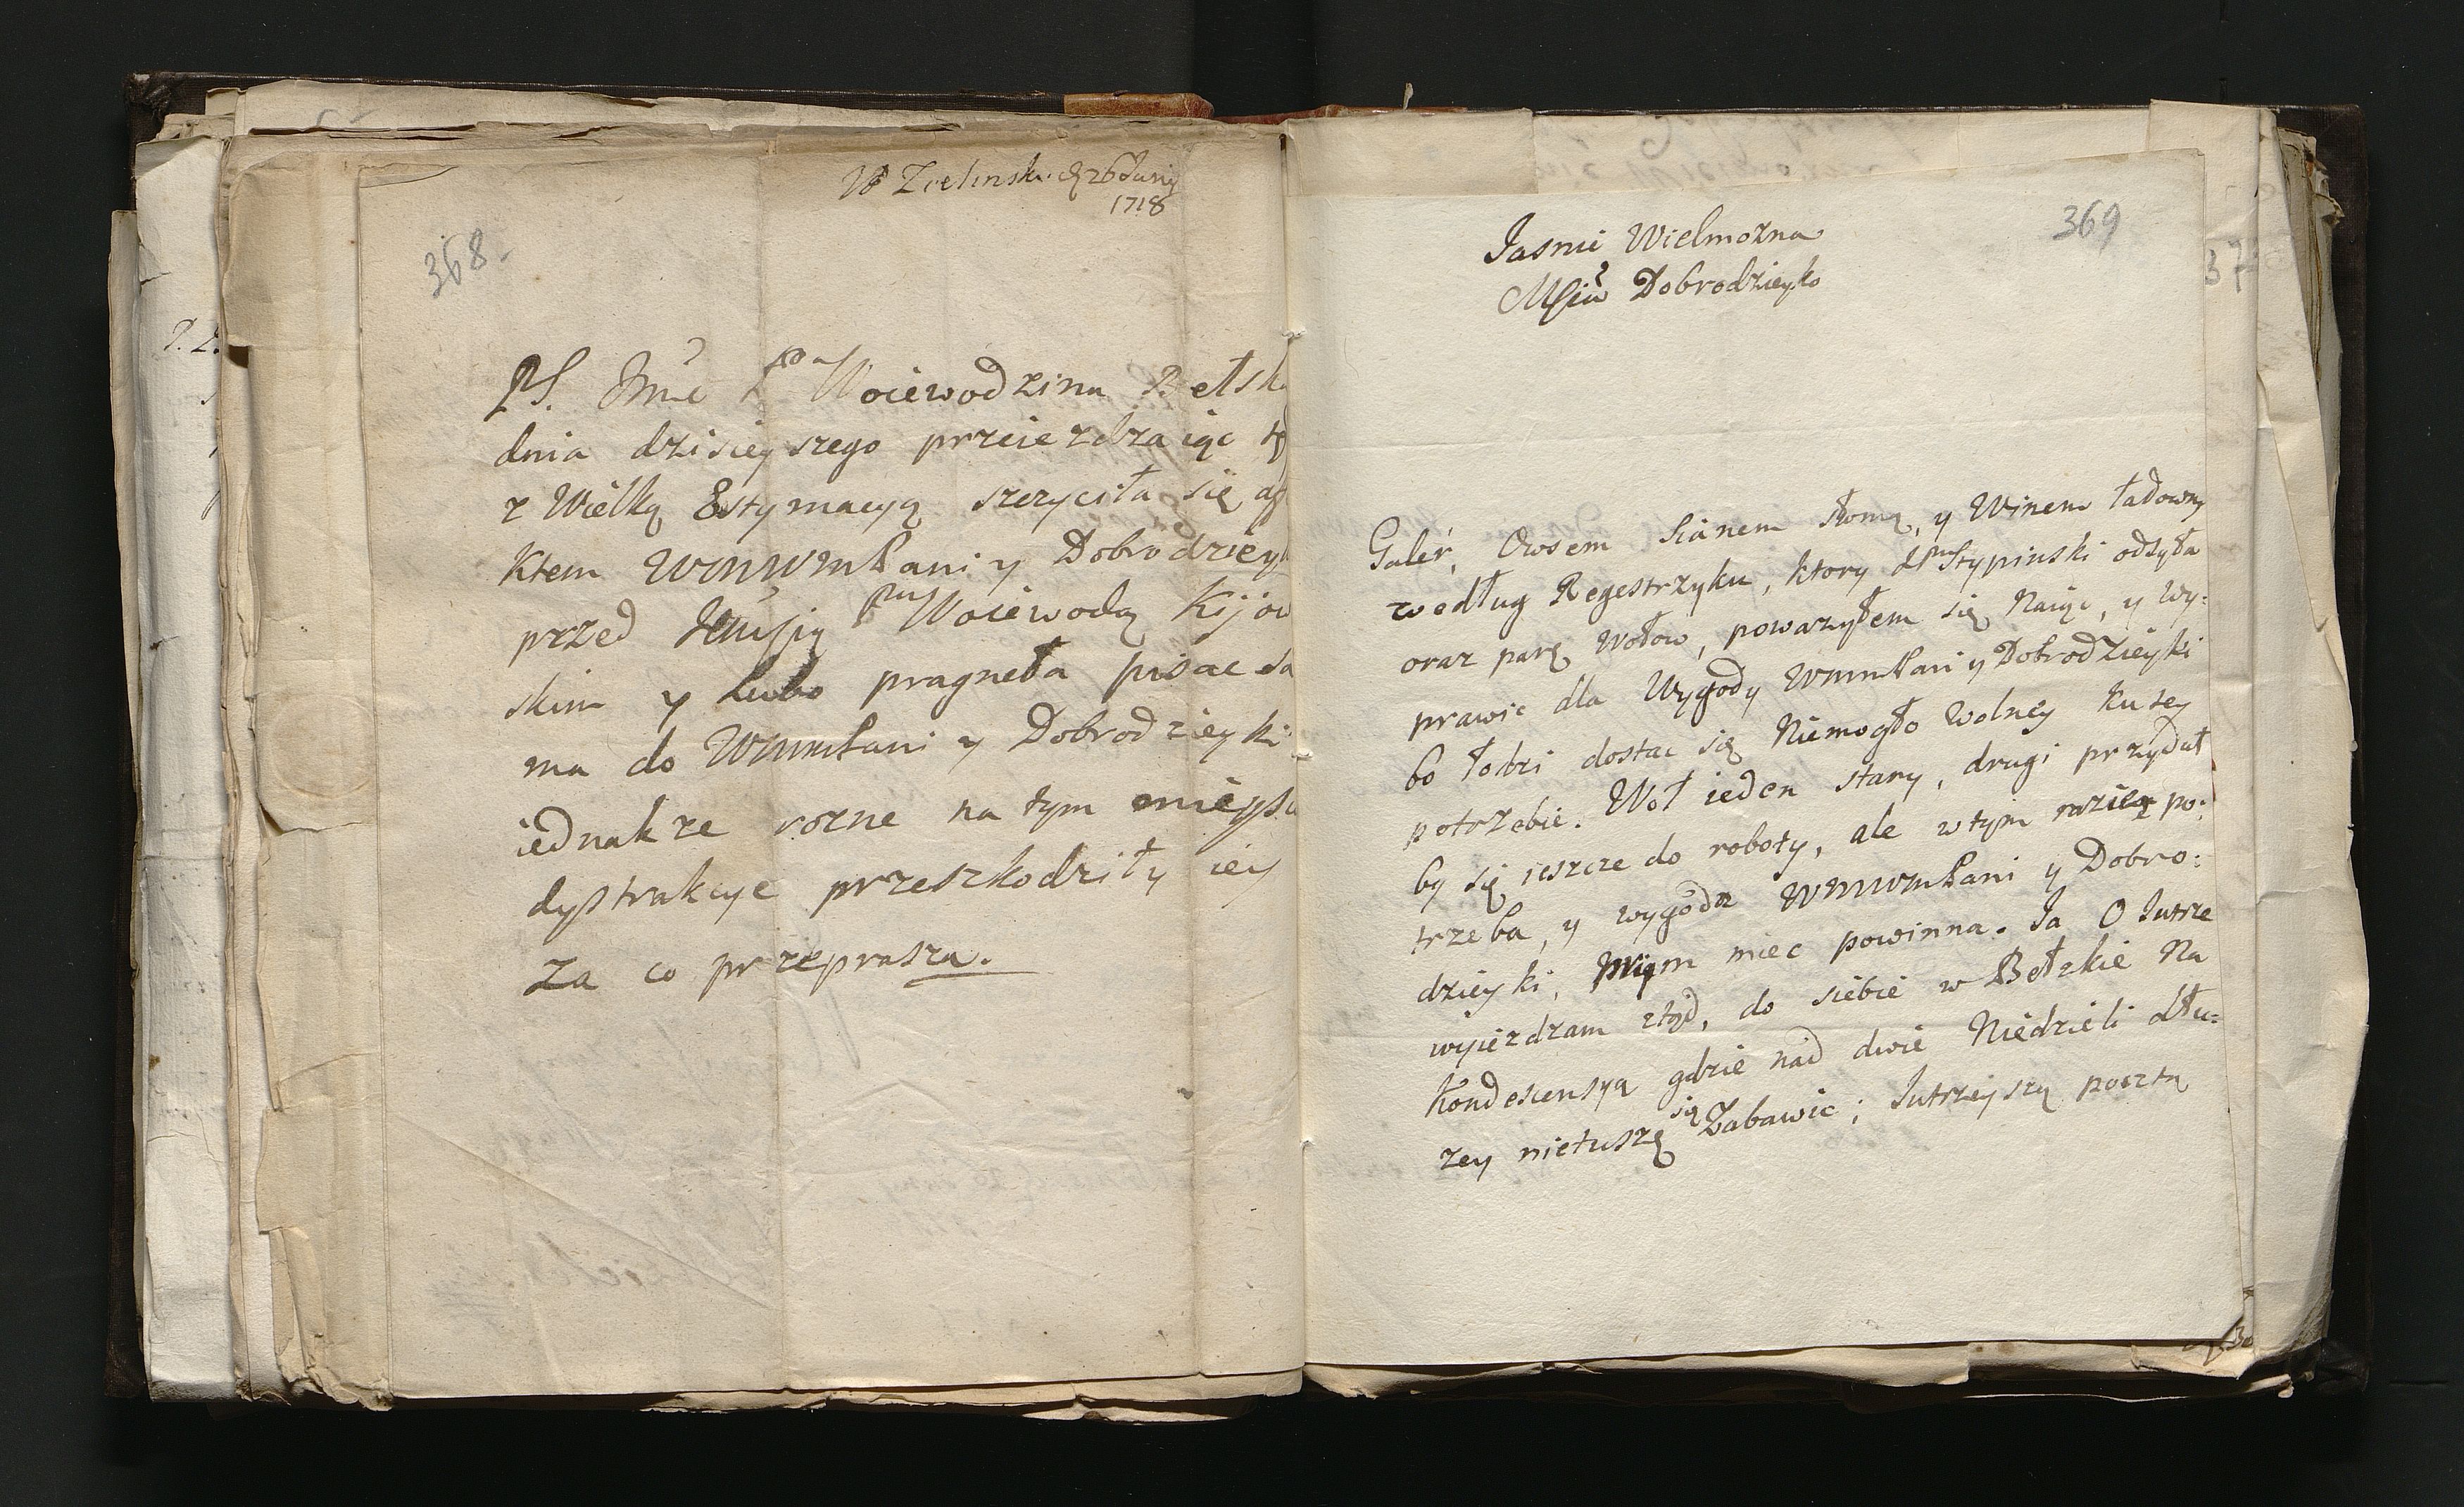 W Zielinsk. d 26 Junij
1718
368.
PS. Jmć Pa Woiewodzina Bełska
dnia dzisieyszego przeiezdzaiąc
z Wielką Estymacyą szczyciła się
ktem WMWMPani y Dobrodzieyk
przed Jmsią Pnm Woiewodą Kijow
skim y lubo pragneła pisac sa
ma do WMMPani y Dobrodzieyki
iednakze rozne na tym mieysc
dystrakcye przeszkodziły iey
za co przeprasza.
369
Jasnie Wielmozna
Mścia Dobrodzieyko
Galer, Owsem Sianem słomą, y Winem ładowny
według Regestrzyku, ktory JP Stypinski odsyła
oraz parę Wołow, powazyłem się Naiąc, y wy:
prawic dla Wygody WMMPani y Dobrodzieyki
bo łodzi dostac się Niemogło Wolney ku tey
potrzebie. Woł ieden stary, drugi przydał
by się ieszcze do roboty, ale w tym razie po:
trzeba, y wygoda WMWMPani y Dobro:
dzieyki, prym miec powinna. Ja O Jutrze
wyiezdzam ztąd, do siebie w Bełzkie Na
Kondescensyą gdzie nad dwie Niedzieli dłu:
zey nietuszę się Zabawic; Jutrzeyszą pocztą
37